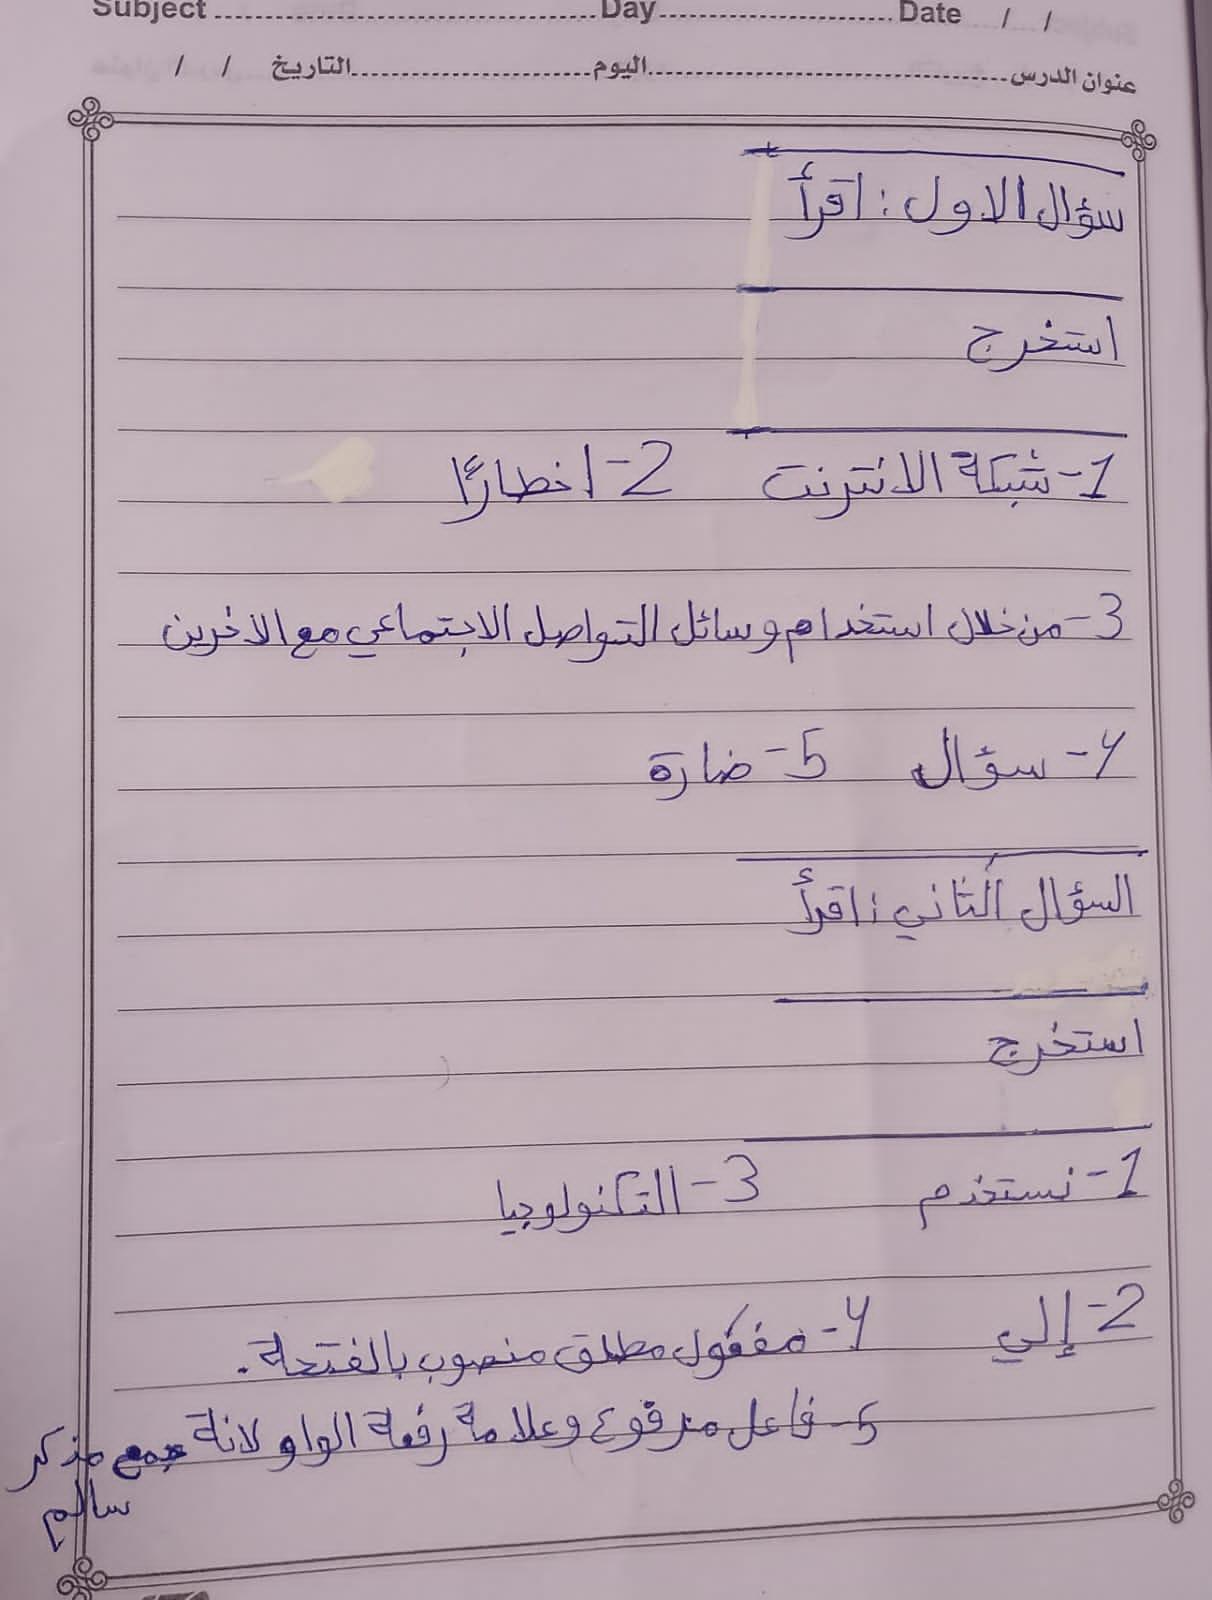 Subject ........ Day ........ Date / /
عنوان الدرس ........ اليوم ........ التاريخ / /
سؤال الاول : اقرأ
استخرج
1- شبكة الانترنت 2- اخطارًا
3- من خلال استخدام وسائل التواصل الاجتماعي مع الاخرين
4- سؤال 5- ضارة
السؤال الثاني : اقرأ
استخرج
1- نستخدم 3- التكنولوجيا
2- إلي 4- مفعول مطلق منصوب بالفتحة.
5- فاعل مرفوع وعلامة رفعة الواو لانة جمع مذكر
سالم